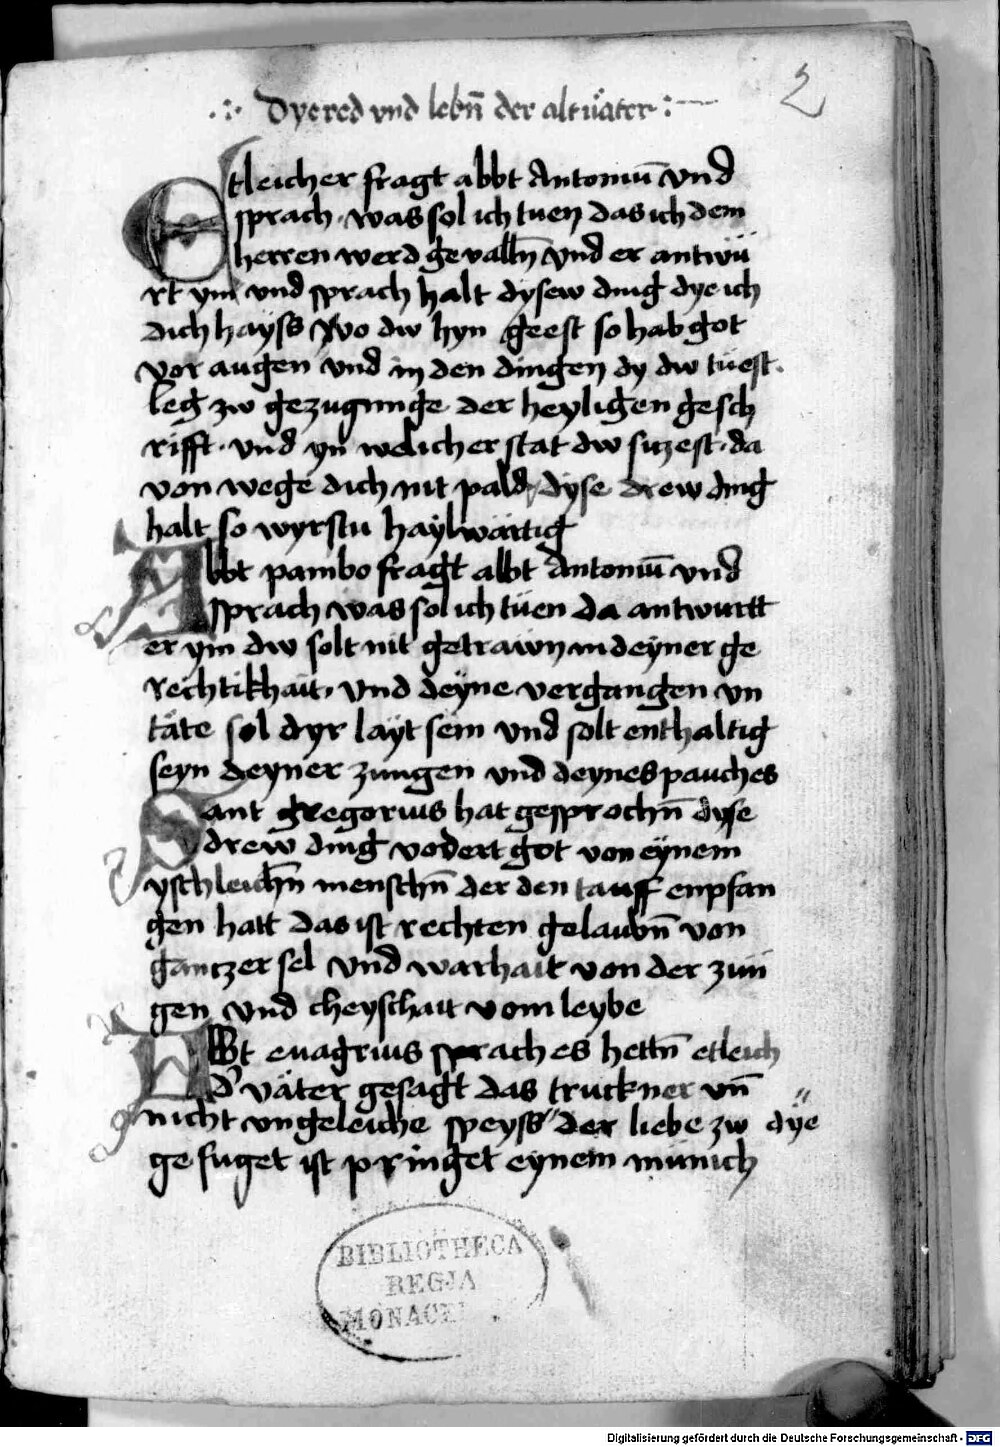 Dye red vnd lebñ der altväter
2
Etleicher fragt abbt Antoniū vnd
sprach was sol ich tuen das ich dem
herren werd gevallñ vnd er antwu
rt ym vnd sprach halt dysew ding dye ich
dich hayss Wo dw hyn geest so hab got
vor augen vnd in den dingen dy dw tüest.
leg zw gezugnuge der heyligen gesch
rifft. vnd yn welicher stat dw siczest. da
von wege dich nit pald, dyse drew ding
halt so wyrstu haylwärtig
Abbt pambo fragt abbt Antoniū vnd
sprach was sol ich tüen da antwurtt
er ym dw solt nit getrawn in deyner ge
rechtikhait, vnd deyne vergangen vn
täte sol dyr layt sein vnd solt enthaltig
seyn deyner zungen vnd deynes pauches
Sant gregorius hat gesprochñ dyse
drew ding vodert got von eynem
yschleichñ menschñ der den tauff enpfan
gen hatt das ist rechten gelaubñ von
gantzer sel vnd warhait von der zun
gen vnd cheyschait vom leybe
Abbt euagrius sprach es hettñ etleich
d' väter gesagt das truckner vñ
nicht vngeleiche speyss" der liebe zw "dye
gefuget ist pringet eynem münich
BIBLIOTHECA
REGIA
MONACE
Digitalisierung gefördert durch die Deutsche Forschungsgemeinschaft - DFG